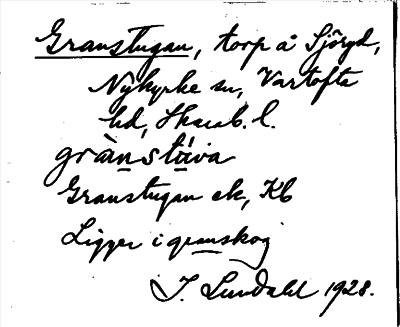 Granstugan, torp å Sjöryd,
Nykyrke sn, Vartofta
hd, Skarab. l.
grànstúva
Granstugan ek, Kb
Ligger i granskog
I. Lundahl 1928.